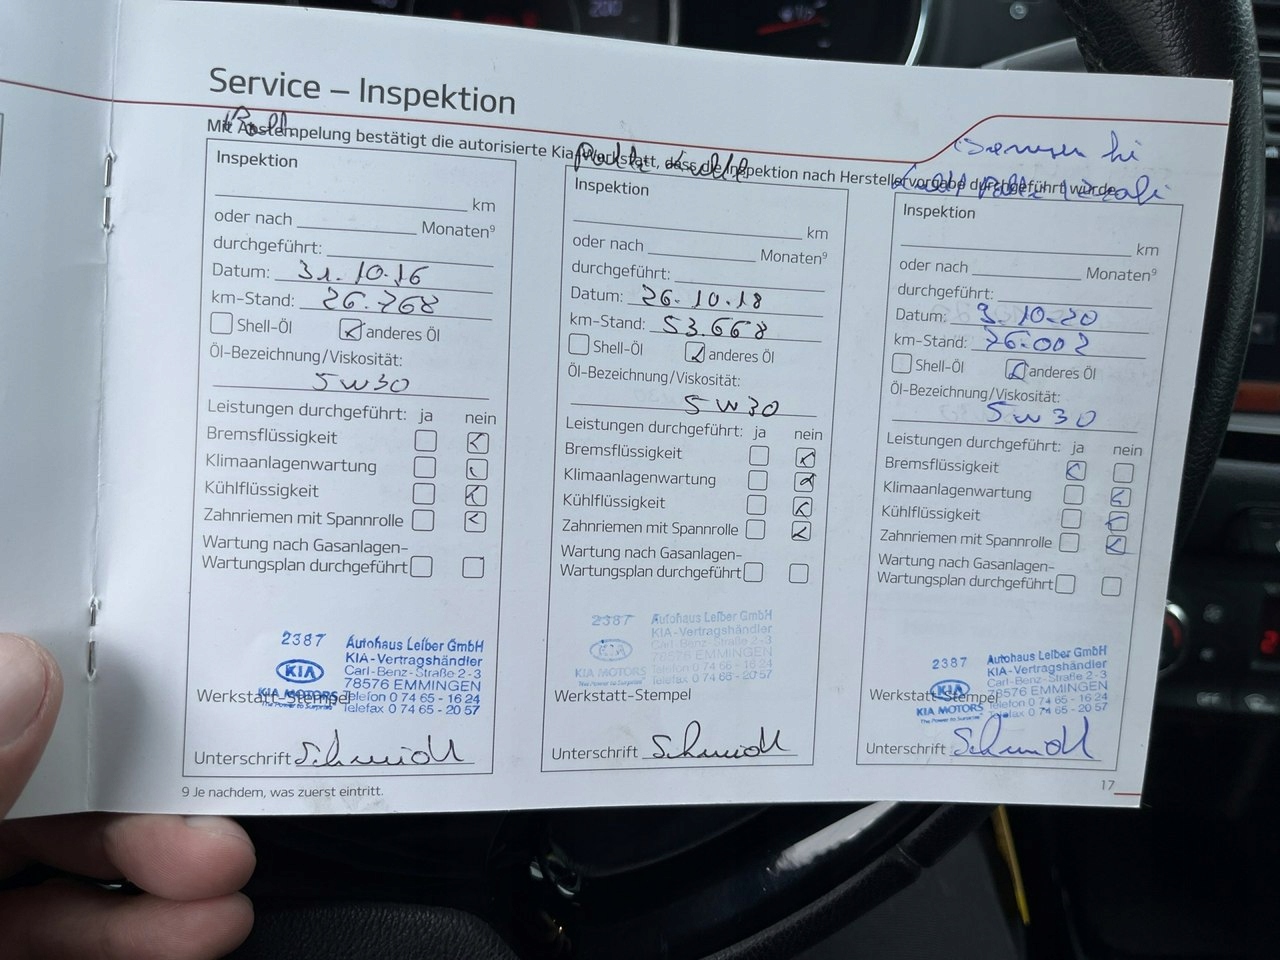 Service – Inspektion
Mit Abstempelung bestätigt die autorisierte Kia-Werkstatt, dass die Inspektion nach Herstellervorgabe durchgeführt wurde.
Inspektion
km
oder nach Monaten⁹
durchgeführt:
Datum: 31.10.16
km-Stand: 26.768
Shell-Öl anderes Öl
Öl-Bezeichnung/Viskosität:
5W30
Leistungen durchgeführt: ja nein
Bremsflüssigkeit
Klimaanlagenwartung
Kühlflüssigkeit
Zahnriemen mit Spannrolle
Wartung nach Gasanlagen-
Wartungsplan durchgeführt
2387 Autohaus Leiber GmbH
KIA KIA-Vertragshändler
Carl-Benz-Straße 2-3
78576 EMMINGEN
KIA MOTORS Telefon 0 74 65 - 16 24
The Power to Surprise Telefax 0 74 65 - 20 57
Werkstatt-Stempel
Unterschrift Schmidt
9 Je nachdem, was zuerst eintritt.
Inspektion
km
oder nach Monaten⁹
durchgeführt:
Datum: 26.10.18
km-Stand: 53.668
Shell-Öl anderes Öl
Öl-Bezeichnung/Viskosität:
5W30
Leistungen durchgeführt: ja nein
Bremsflüssigkeit
Klimaanlagenwartung
Kühlflüssigkeit
Zahnriemen mit Spannrolle
Wartung nach Gasanlagen-
Wartungsplan durchgeführt
2387 Autohaus Leiber GmbH
KIA KIA-Vertragshändler
Carl-Benz-Straße 2-3
78576 EMMINGEN
KIA MOTORS Telefon 0 74 65 - 16 24
The Power to Surprise Telefax 0 74 65 - 20 57
Werkstatt-Stempel
Unterschrift Schmidt
Inspektion
km
oder nach Monaten⁹
durchgeführt:
Datum: 9.10.20
km-Stand: 76.002
Shell-Öl anderes Öl
Öl-Bezeichnung/Viskosität:
5W30
Leistungen durchgeführt: ja nein
Bremsflüssigkeit
Klimaanlagenwartung
Kühlflüssigkeit
Zahnriemen mit Spannrolle
Wartung nach Gasanlagen-
Wartungsplan durchgeführt
2387 Autohaus Leiber GmbH
KIA KIA-Vertragshändler
Carl-Benz-Straße 2-3
78576 EMMINGEN
KIA MOTORS Telefon 0 74 65 - 16 24
The Power to Surprise Telefax 0 74 65 - 20 57
Werkstatt-Stempel
Unterschrift Schmidt
17